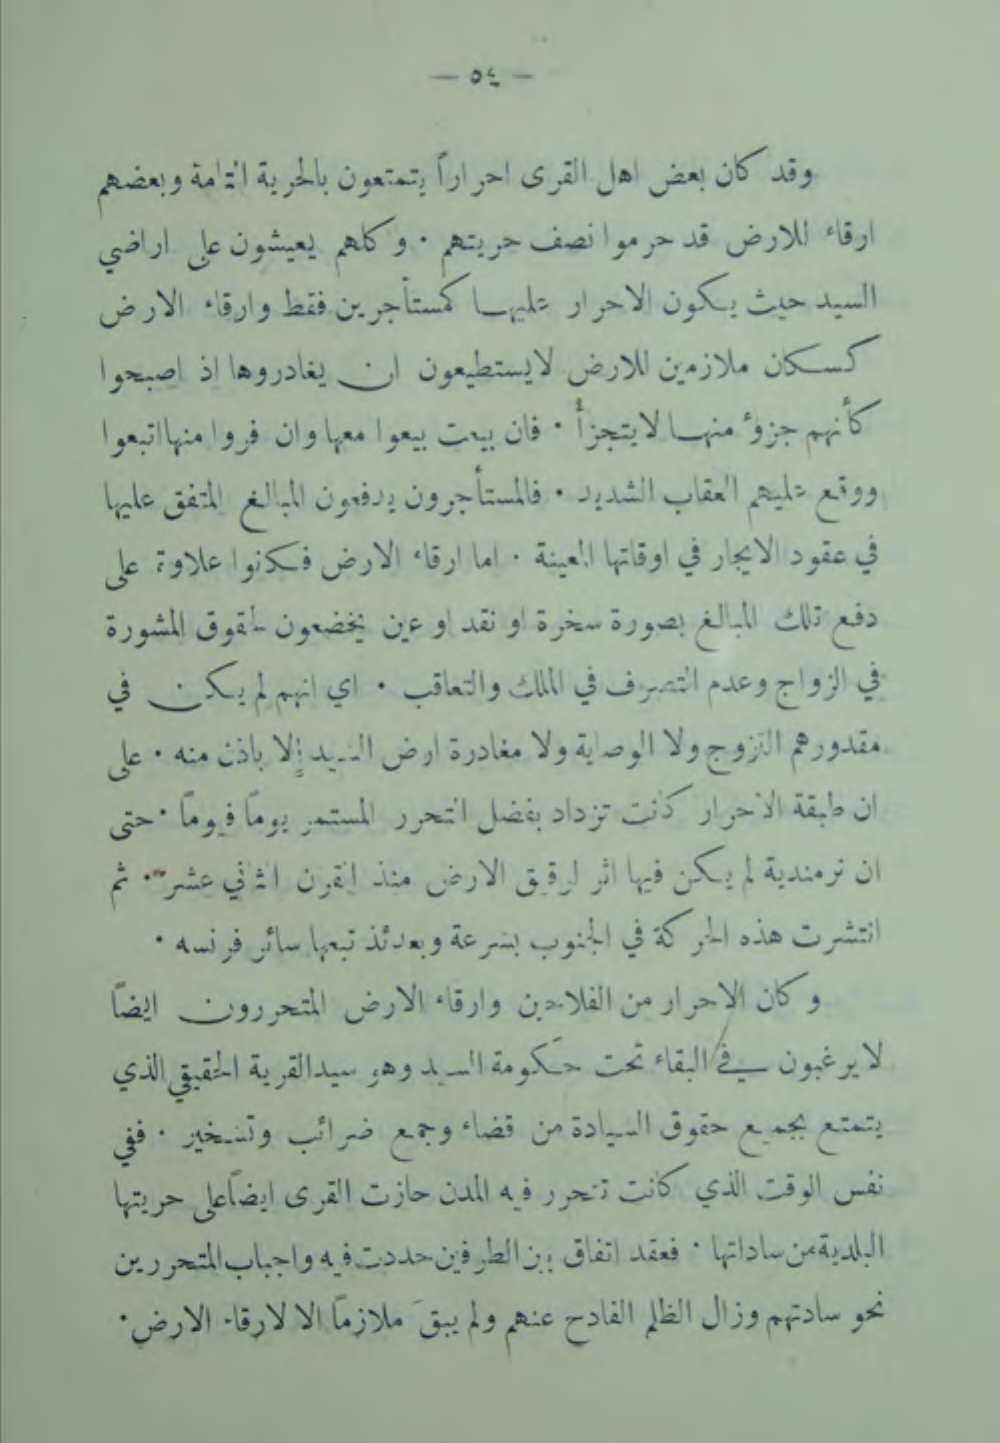 — ٥٤ —
وقد كان بعض اهل القرى احراراً يتمتعون بالحرية التامة وبعضهم
ارقاء للارض قد حرموا نصف حريتهم . وكلهم يعيشون على اراضي
السيد حيث يكون الاحرار عليها كمستأجرين فقط وارقاء الارض
كسكان ملازمين للارض لايستطيعون ان يغادروها اذ اصبحوا
كأنهم جزوء منها لايتجزأ . فان بيعت بيعوا معها وان فروا منها اتبعوا
ووقع عليهم العقاب الشديد . فالمستأجرون يدفعون المبالغ المتفق عليها
في عقود الايجار في اوقاتها المعينة . اما ارقاء الارض فكانوا علاوة على
دفع تلك المبالغ بصورة سخرة او نقد او عين يخضعون لحقوق المشورة
في الزواج وعدم التصرف في الملك والتعاقب . اي انهم لم يكن في
مقدورهم التزوج ولا الوصاية ولا مغادرة ارض السيد إلا باذن منه . على
ان طبقة الاحرار كانت تزداد بفضل التحرر المستمر يوماً فيوماً . حتى
ان نرمندية لم يكن فيها اثر لرقيق الارض منذ القرن الثاني عشر . ثم
انتشرت هذه الحركة في الجنوب بسرعة وبعدئذ تبعها سائر فرنسه .
وكان الاحرار من الفلاحين وارقاء الارض المتحررون ايضاً
لا يرغبون في البقاء تحت حكومة السيد وهو سيد القرية الحقيقي الذي
يتمتع بجميع حقوق السيادة من قضاء وجمع ضرائب وتسخير . ففي
نفس الوقت الذي كانت تتحرر فيه المدن حازت القرى ايضاً على حريتها
البلدية من ساداتها . فعقد اتفاق بين الطرفين حددت فيه واجبات المتحررين
نحو سادتهم وزال الظلم الفادح عنهم ولم يبقَ ملازماً الا لارقاء الارض .